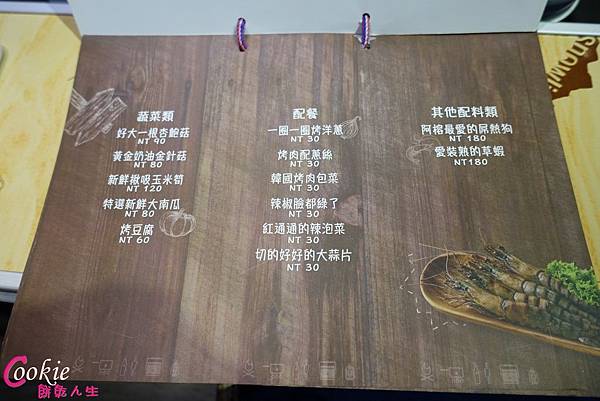 蔬菜類
好大一根杏鮑菇
NT 90
黃金奶油金針菇
NT 80
新鮮揪吸玉米筍
NT 120
特選新鮮大南瓜
NT 80
烤豆腐
NT 60
配餐
一圈一圈烤洋蔥
NT 30
烤肉配蔥絲
NT 30
韓國烤肉包菜
NT 30
辣椒臉都綠了
NT 30
紅通通的辣泡菜
NT 30
切的好好的大蒜片
NT 30
其他配料類
阿榕最愛的屌熱狗
NT 180
愛裝熟的草蝦
NT180
Cookie
餅乾人生